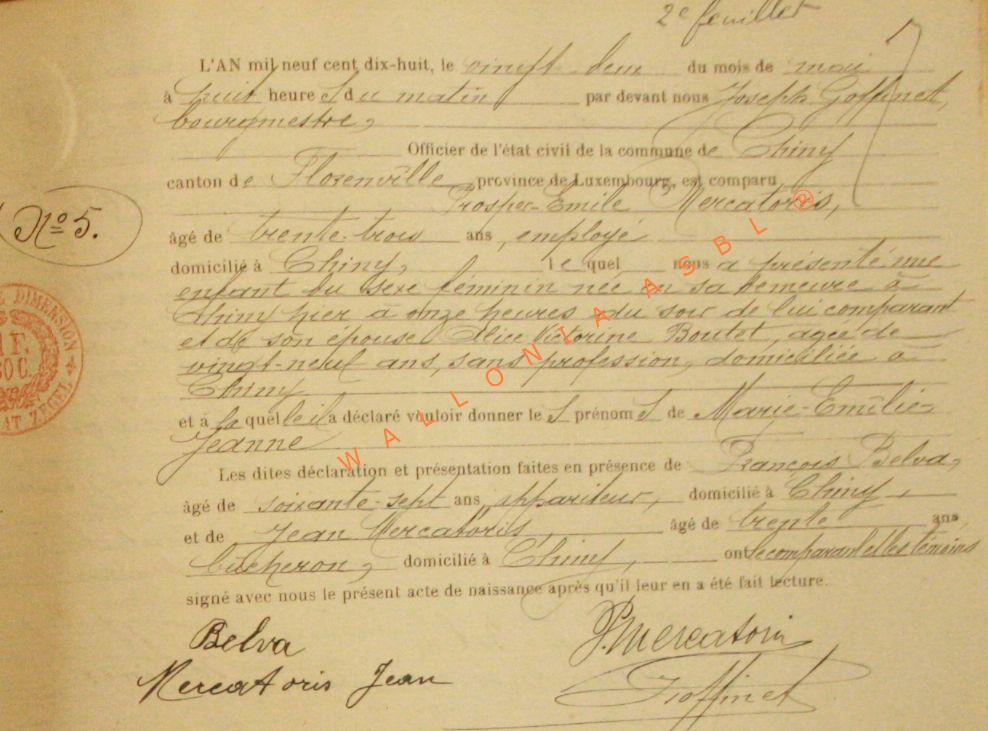 2e feuillet
L'AN mil neuf cent dix-huit, le vingt deux du mois de mai
à huit heure s du matin par devant nous Joseph Goffinet,
bourgmestre,
Officier de l'état civil de la commune de Chiny
canton de Florenville province de Luxembourg, est comparu
Prosper-Emile Mercatoris,
No 5.
âgé de trente-trois ans, employé
domicilié à Chiny, le quel nous a présenté une
enfant du sexe féminin née en sa demeure à
Chiny hier à onze heures du soir de lui comparant
et de son épouse Alice Victorine Boutet, agée de
vingt-neuf ans, sans profession, domiciliée à
Chiny
et a la quelle il a déclaré vouloir donner le s prénom s de Marie-Emilie-
Jeanne
Les dites déclaration et présentation faites en présence de François Belva,
âgé de soixante-sept ans, appariteur, domicilié à Chiny,
et de Jean Mercatoris, âgé de trente ans,
bucheron, domicilié à Chiny, ont le comparant et les témoins
signé avec nous le présent acte de naissance après qu'il leur en a été fait lecture.
Belva
P. Mercatoris
Mercatoris Jean
Goffinet
DIMENSION
ZEGEL
WALLONIA ASBL ®